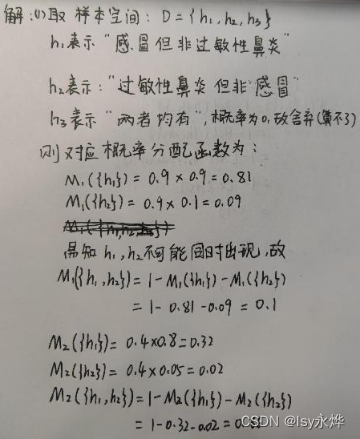 解:(1)取 样本空间: D={h₁,h₂,h₃}
h₁表示“感冒但非过敏性鼻炎”
h₂表示:“过敏性鼻炎 但非 感冒”
h₃表示“两者均有”,概率为0,故舍弃(算不了)
则对应概率分配函数为:
M₁({h₁})=0.9×0.9=0.81
M₁({h₂})=0.9×0.1=0.09
易知h₁,h₂不可能同时出现,故
M₁({h₁,h₂})=1-M₁({h₁})-M₁({h₂})
=1-0.81-0.09=0.1
M₂({h₁})=0.4×0.8=0.32
M₂({h₂})=0.4×0.05=0.02
M₂({h₁,h₂})=1-M₂({h₁})-M₂({h₂})
=1-0.32-0.02=0.
CSDN @lsy永烨